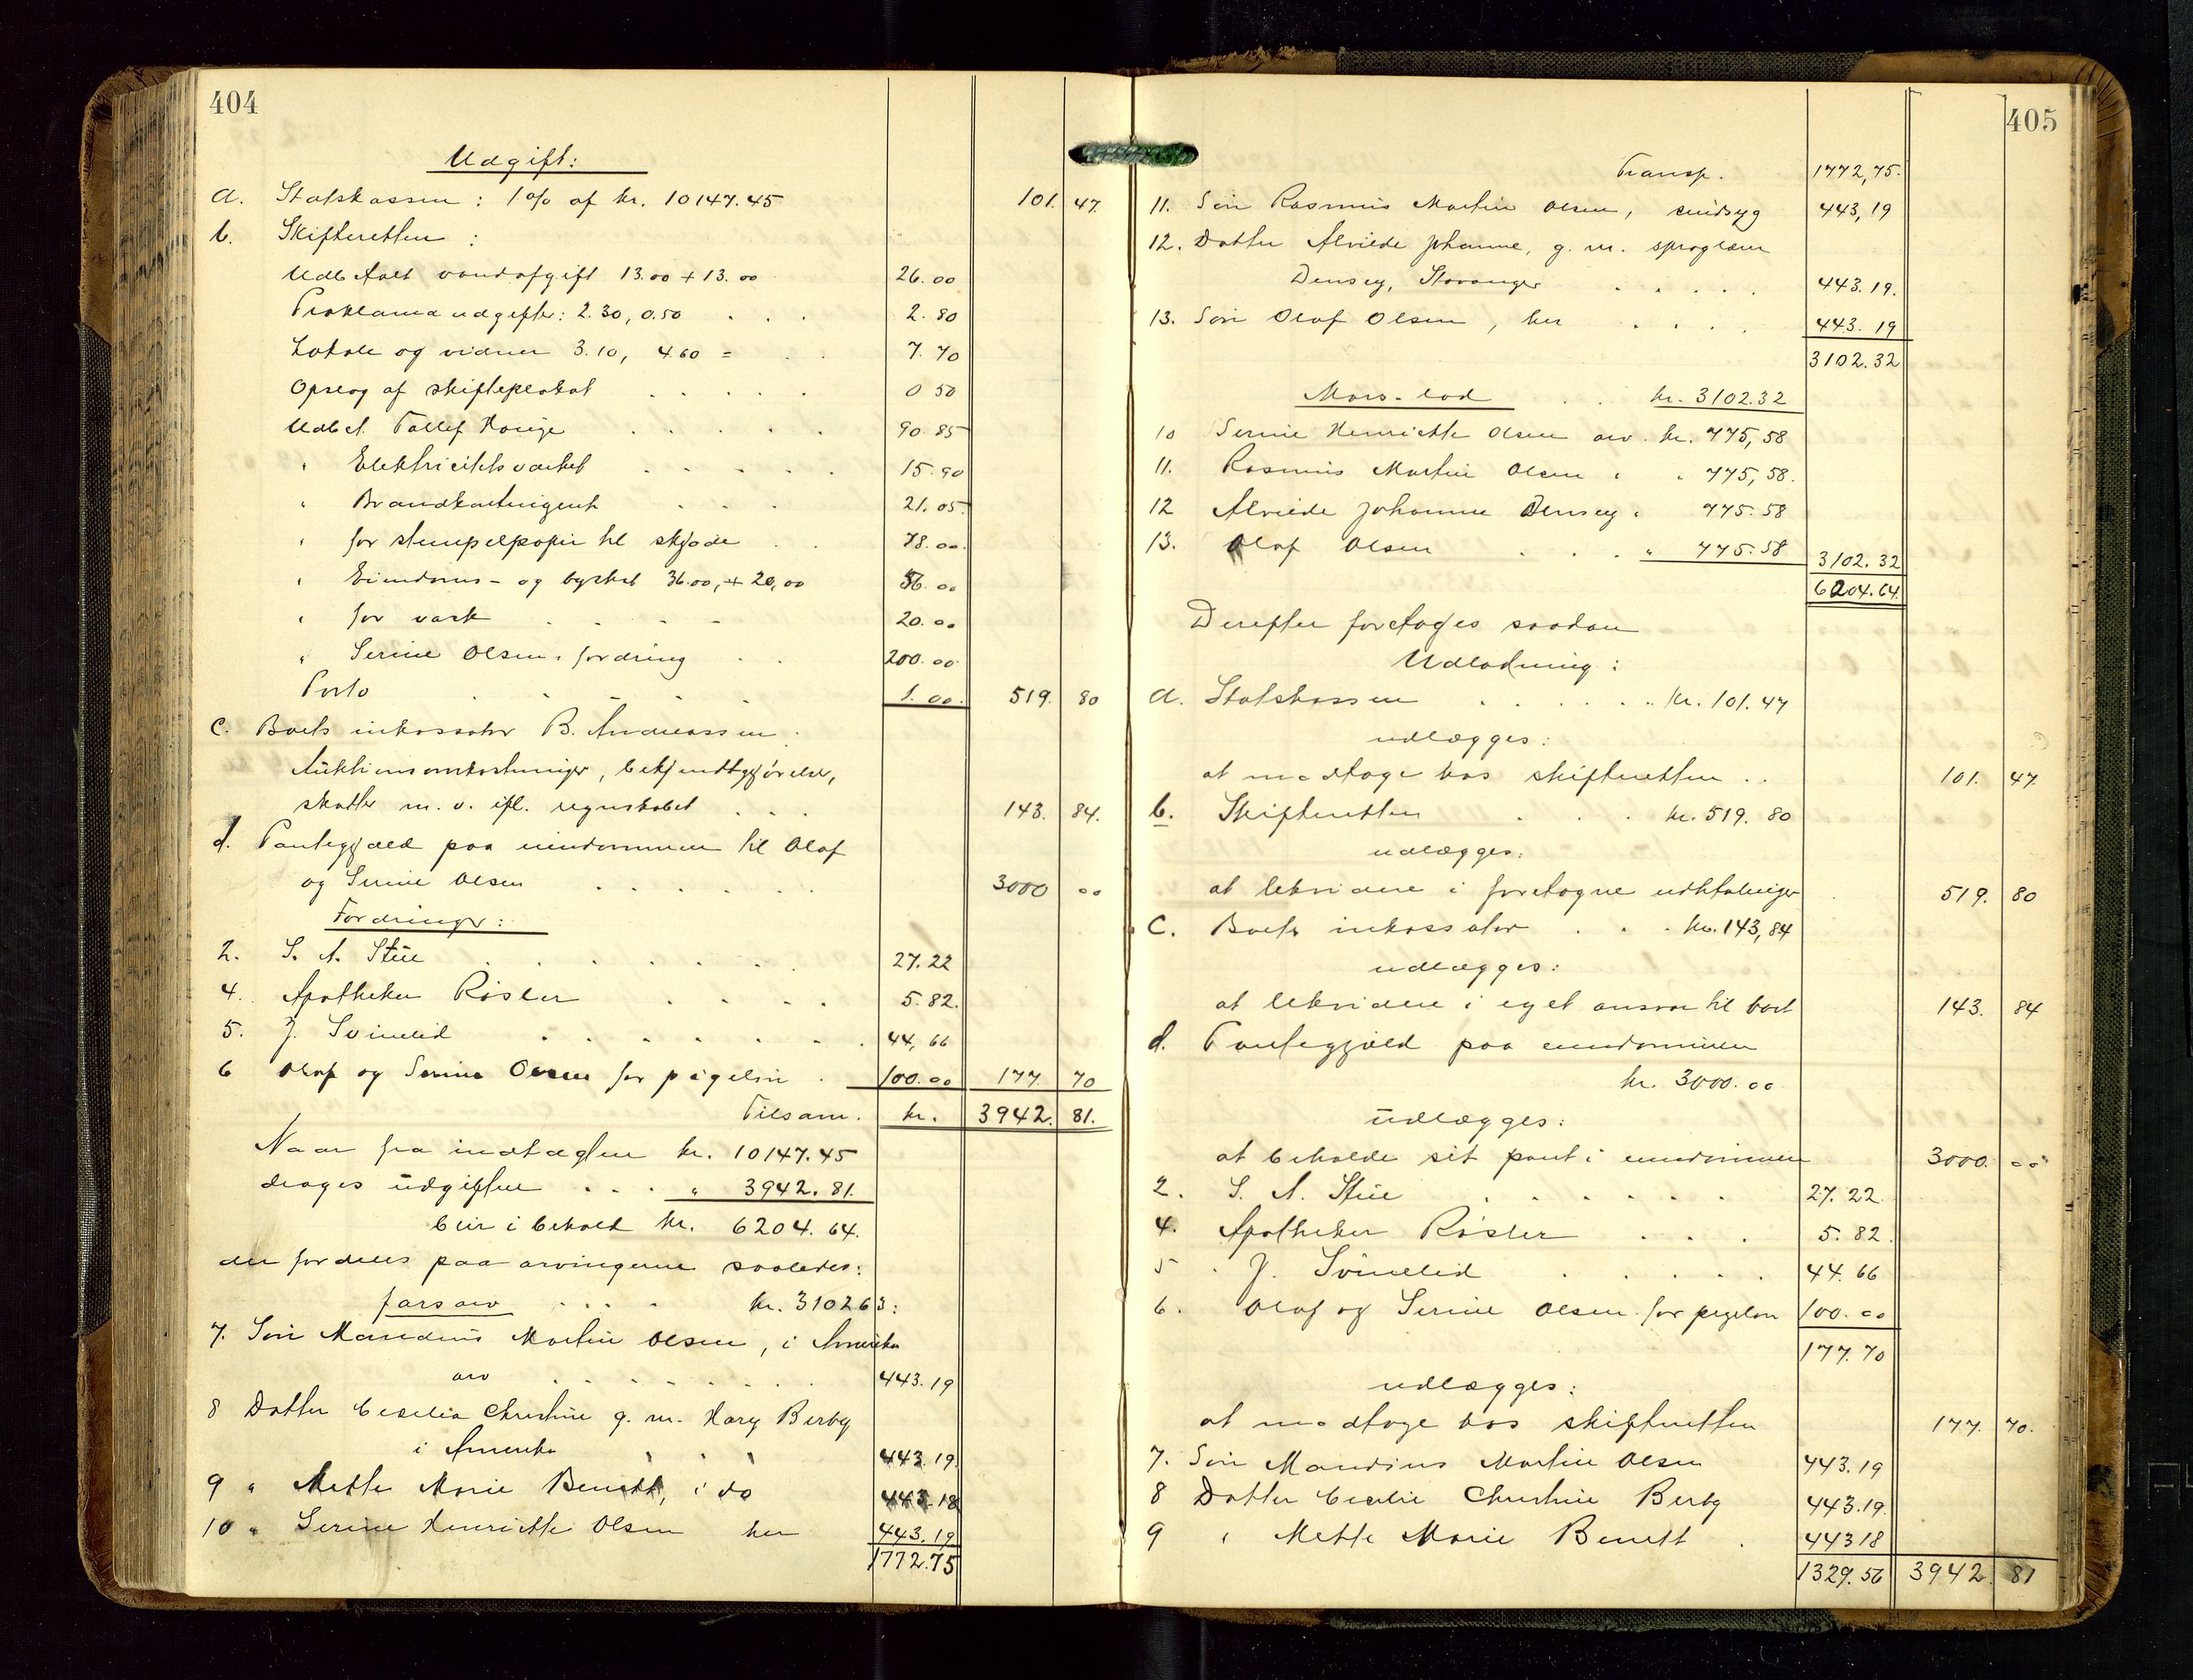 404
Udgift:
a. Statskassen: 1% af kr. 10147.45 101. 47.
b. Skifteretten:
Udbetalt vandafgift 13.00 + 13.00 26.00
Proklamaudgifter: 2.30, 0.50 . . . 2.80
Lokale og vidner 3.10, 4.60 = . . 7.70
Opslag af skifteplakat . . . . . 0 50
Udbet. Tollef Hauge . . . . . 90.85
" Elektricitetsverket . . . . . 15.90
" Brandkontingent . . . 21.05
" for stempelpapir til skjøde . . 78.00.
" Eiendoms- og byskat 36.00, + 20,00 56.00
" for vask . . . . 20.00
" Serine Olsens fordring . . 200.00
Porto . . . . . 1.00. 519. 80
C. Boets inkassator B. Andreassen:
Auktionsomkostninger, bekjendtgjørelser,
skatter m. v. ifl. regnskabet . . . 143. 84.
d. Pantegjæld paa eiendommen til Olaf
og Serine Olsen . . . . . . 3000 00
Fordringer:
2. S. A. Stue . . . . . . . 27.22
4. Apotheker Rösler . . . . 5.82.
5. J. Svinelid . . . . . . . 44,66
6 Olaf og Serine Olsen for pigeløn . 100.00 177. 70
Tilsam. kr. 3942. 81.
Naar fra indtægten kr. 10147.45
drages udgiften . . . " 3942.81.
blir i behold kr. 6204.64.
der fordeles paa arvingerne saaledes:
farsarv . . . . kr. 310263:
7. Søn Mandius Martin Olsen, i Amerika
arv . . . . . . . . 443.19
8 Datter Cecilia Christine g. m. Harry Berby
i Amerika . . . 443.19.
9 " Mette Marie Benett, i do 443.18
10 " Serine Henriette Olsen her 443.19
1772.75
405
Transp. 1772,75.
11. Søn Rasmus Martin Olsen, sindsyg 443,19
12. Datter Alvilde Johanne, g. m. sproglærer
Densey, Stavanger . . . . . 443.19.
13. Søn Olaf Olsen, her . . . . 443.19
3102.32
Mors-lod . . kr. 3102.32
10 Serine Henriette Olsen arv. kr. 775,58
11. Rasmus Martin Olsen " " 775,58.
12 Alvilde Johanne Densey " 775.58
13. Olaf Olsen . . . " 775.58 3102.32
6204.64.
Derefter foretages saadan
Udlodning:
a. Statskassen . . . . . . kr. 101.47
udlægges:
at modtage hos skifteretten . . 101. 47.
b. Skifteretten . . . kr. 519. 80
udlægges:
at lekvidere i foretagne udbetalinger 519. 80
C. Boets inkassator . . . kr. 143,84
udlægges:
at lekvidere i eget ansvar til boet 143. 84
d. Pantegjæld paa eiendommen
kr. 3000.00
udlægges:
at beholde sit pant i eiendommen 3000. 00
2. S. A. Stue . . . . . . 27.22.
4. Apotheker Rösler . . . 5.82.
5 J. Svinelid . . . . . 44.66
6. Olaf og Serine Olsen for pigeløn 100.00
177.70
udlægges:
at modtage hos skifteretten 177. 70.
7. Søn Mandius Martin Olsen 443.19
8 Datter Cecilie Christine Berby 443.19.
9 " Mette Marie Benett . 44318
1329.56 3942. 81